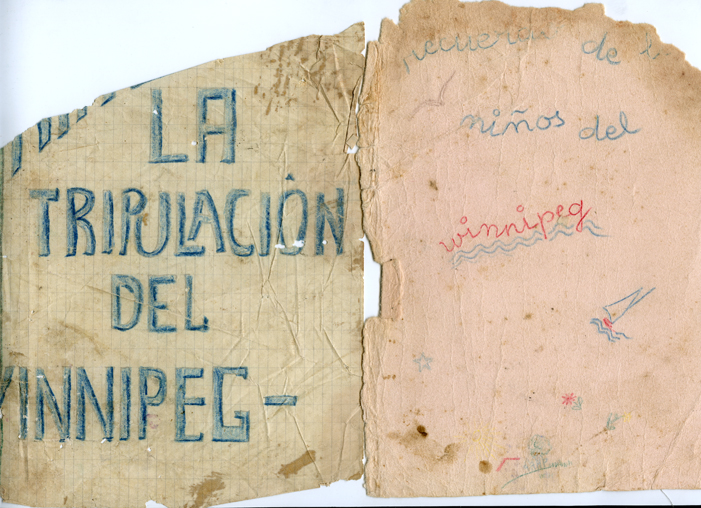 LA
TRIPULACIÓN
DEL
WINNIPEG-
recuerdo de l
niños del
winnipeg